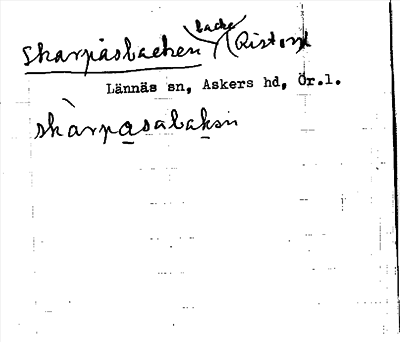 Skarpåsbacken backe
Lännäs sn, Askers hd, Ör.l.
skàrpasabaksn